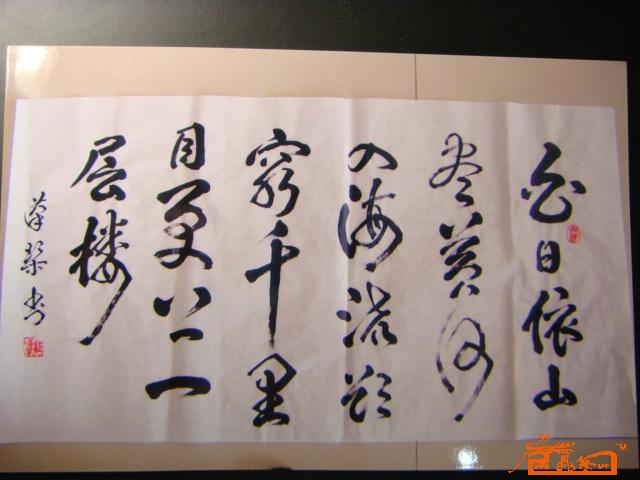 白日依山
尽黄河
入海流欲
窮千里
目更上一
层楼
书